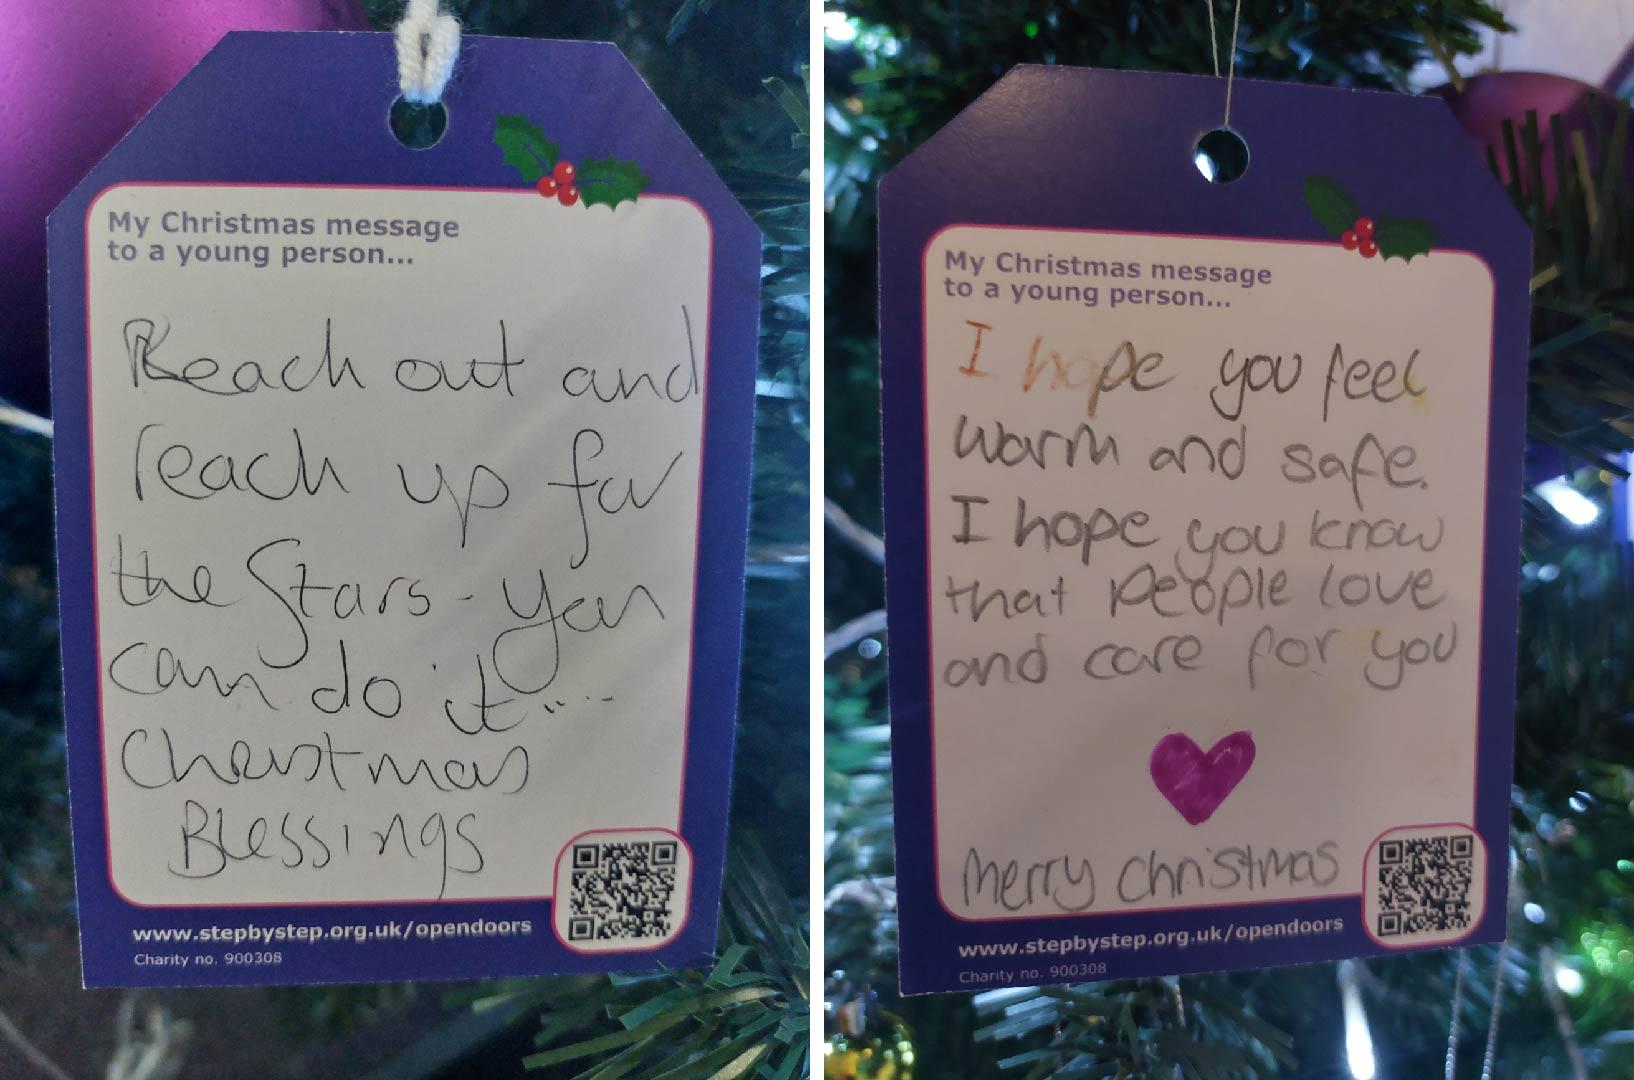 My Christmas message
to a young person...
Reach out and
reach up for
the Stars - you
can do it ....
Christmas
Blessings
www.stepbystep.org.uk/opendoors
Charity no. 900308
My Christmas message
to a young person...
I hope you feel
warm and safe.
I hope you know
that people love
and care for you
merry christmas
www.stepbystep.org.uk/opendoors
Charity no. 900308